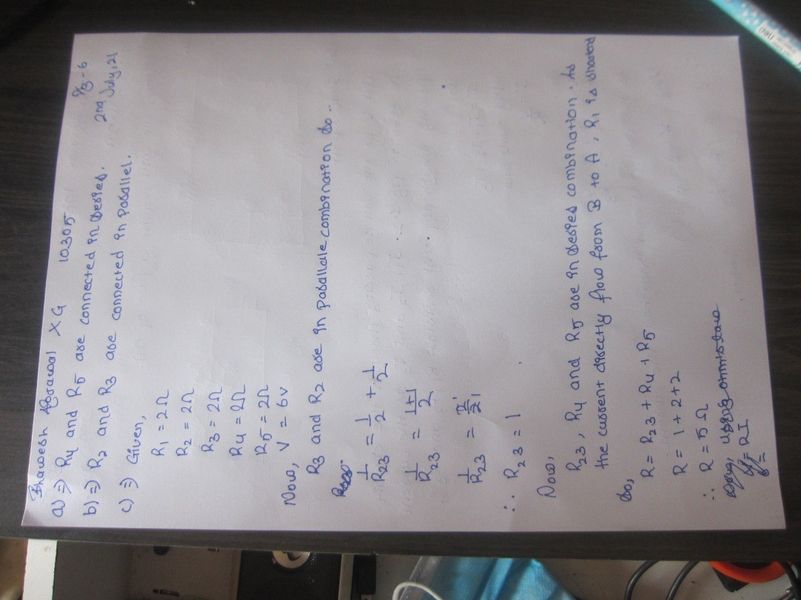 Bhawesh Agrawal X G 10305 9/3-6
a) ⇒ R4 and R5 are connected in series. 2nd July, 21
b) ⇒ R2 and R3 are connected in parallel.
c) ⇒ Given,
R1 = 2Ω
R2 = 2Ω
R3 = 2Ω
R4 = 2Ω
R5 = 2Ω
V = 6v
Now,
R3 and R2 are in parallale combination so..
1/R23 = 1/2 + 1/2
1/R23 = 1+1/2
1/R23 = 2/2 1
∴ R23 = 1
Now,
R23, R4 and R5 are in series combination. As
the current directly flow from B to A, R1 is shorted
So,
R = R23 + R4 + R5
R = 1 + 2 + 2
∴ R = 5 Ω
using ohm's law
V = RI